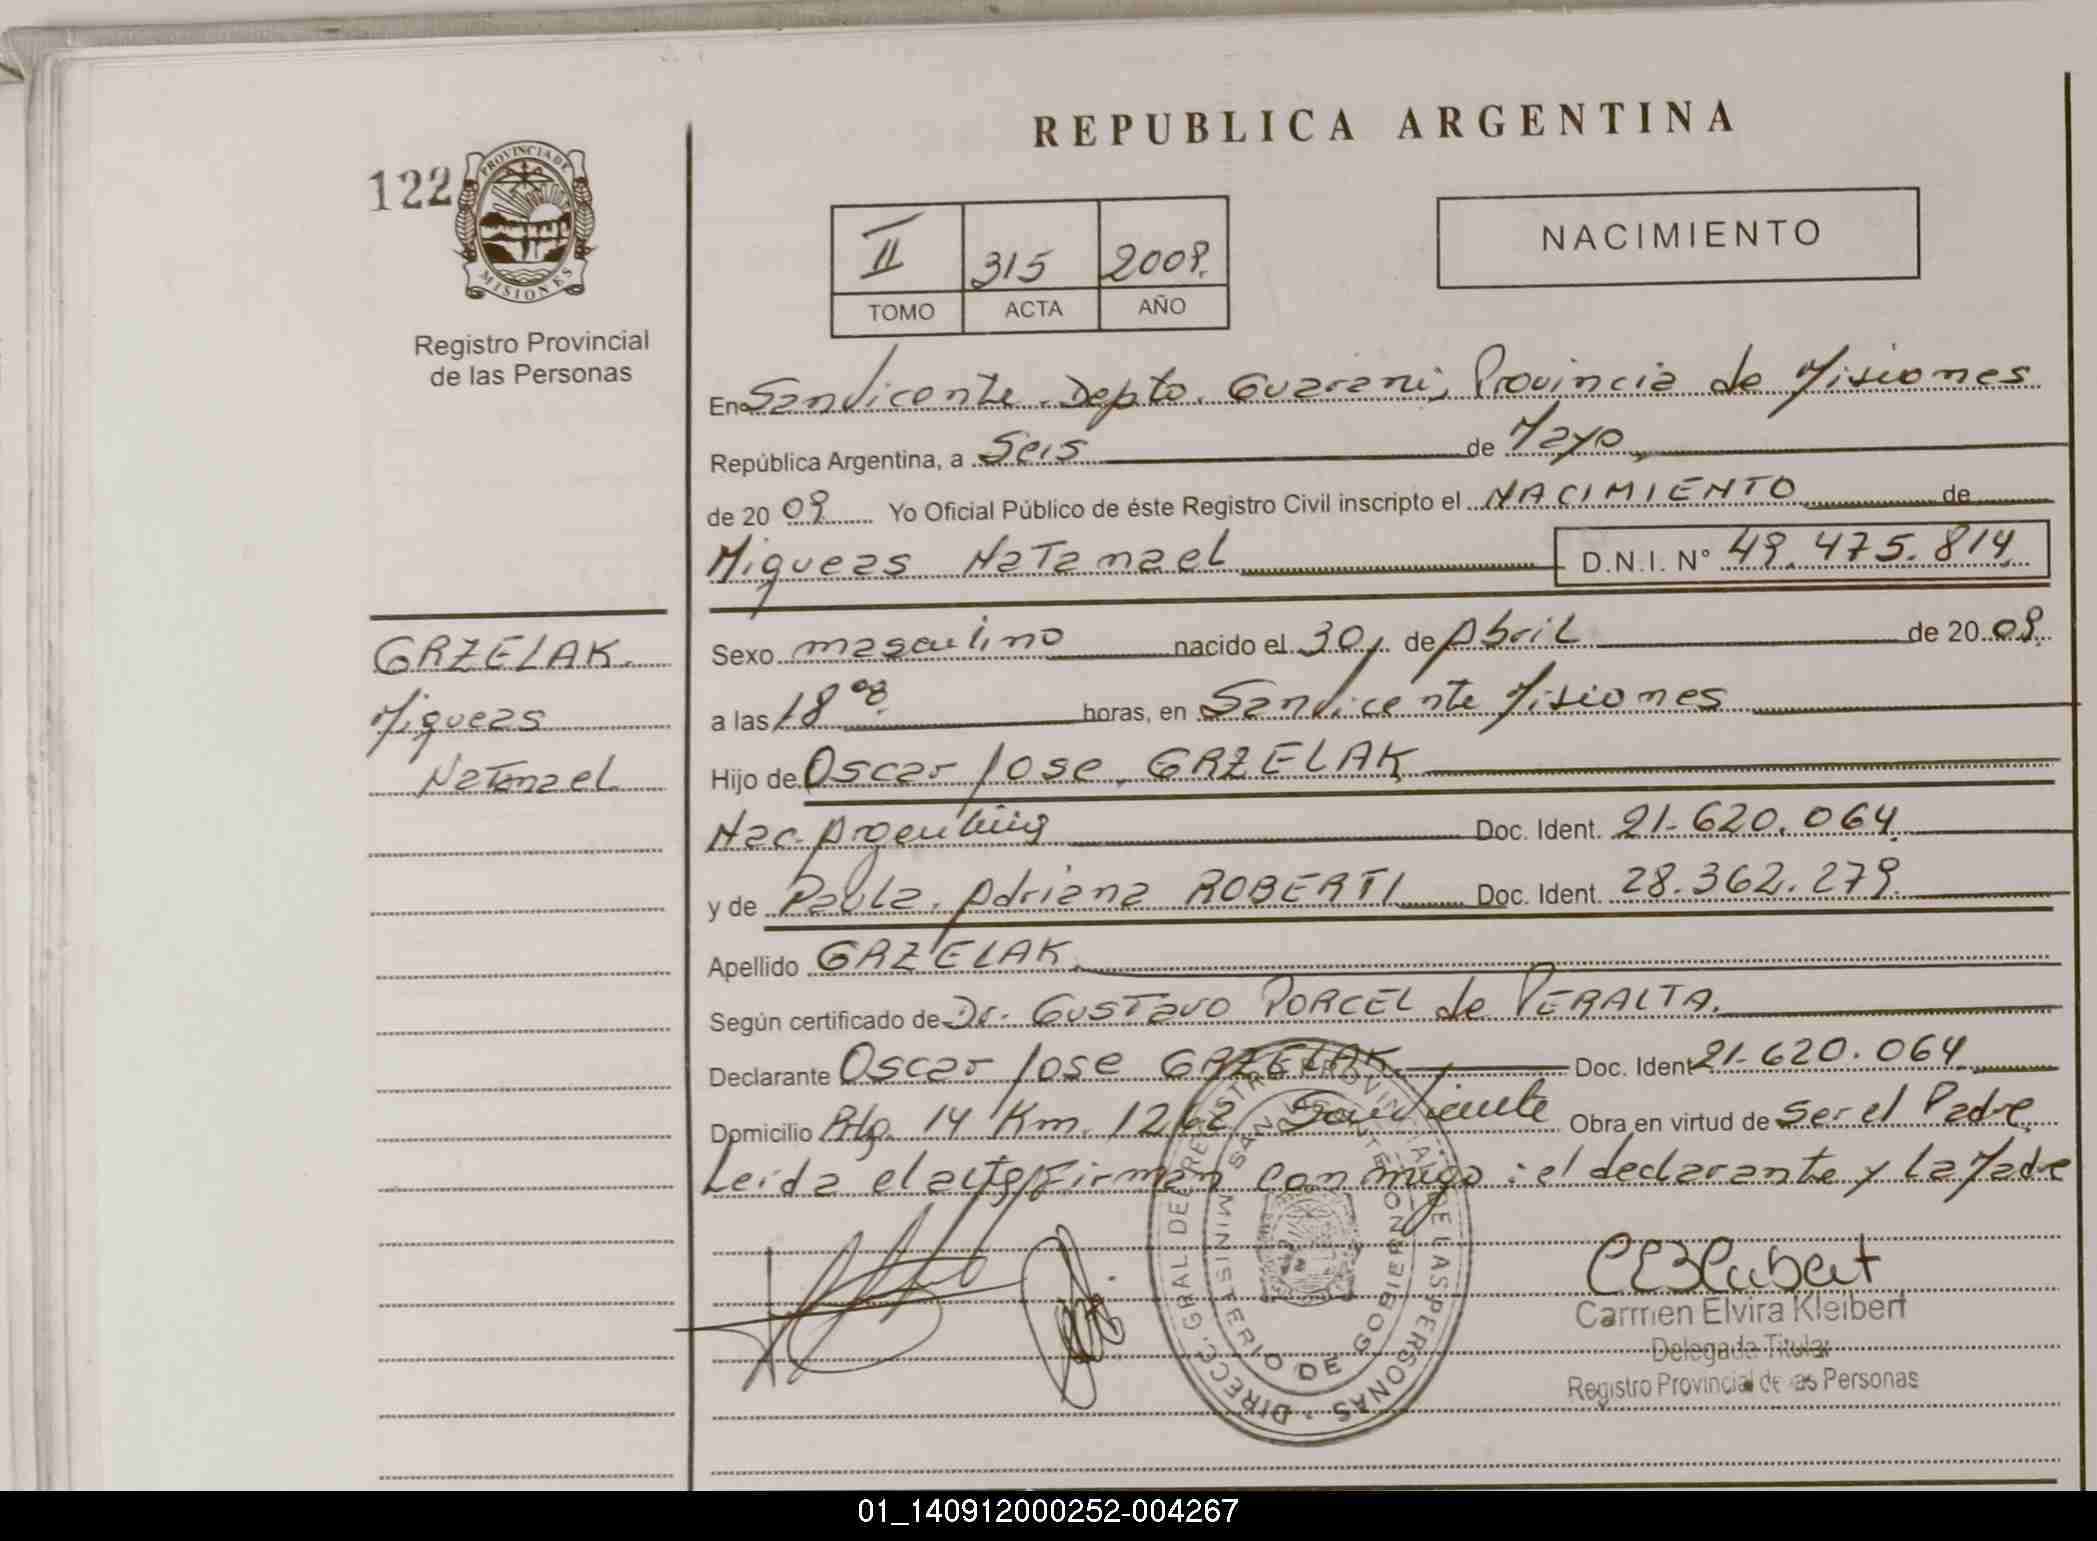 REPUBLICA ARGENTINA
122
PROVINCIA DE
MISIONES
Registro Provincial
de las Personas
NACIMIENTO
II 315 2009.
TOMO ACTA AÑO
En San Vicente. Depto. Guarani, Provincia de Misiones
República Argentina, a Seis de Mayo,
de 20 09 Yo Oficial Público de éste Registro Civil inscripto el NACIMIENTO de
Miqueas Natanael D.N.I. N° 49.475.814.
GRZELAK.
Miqueas
Natanael
Sexo masculino nacido el 30, de Abril de 20 09.
a las 18 horas, en San Vicente Misiones
Hijo de Oscar Jose GRZELAK
Nac. Argentina Doc. Ident. 21.620.064.
y de Paula Adriana ROBERTI Doc. Ident. 28.362.279.
Apellido GRZELAK.
Según certificado de Dr. Gustavo PORCEL de PERALTA.
Declarante Oscar Jose GRZELAK Doc. Ident 21.620.064.
Domicilio 14 Km. 1262 San Vicente Obra en virtud de ser el Padre.
Leida el acta firman conmigo: el declarante y la Madre
DIRECC. GRAL DEL REGISTRO PROVINCIAL DE LAS PERSONAS
MINISTERIO DE GOBIERNO
SAN VICENTE
Carmen Elvira Kleibert
Delegada Titular
Registro Provincial de las Personas
01_140912000252-004267